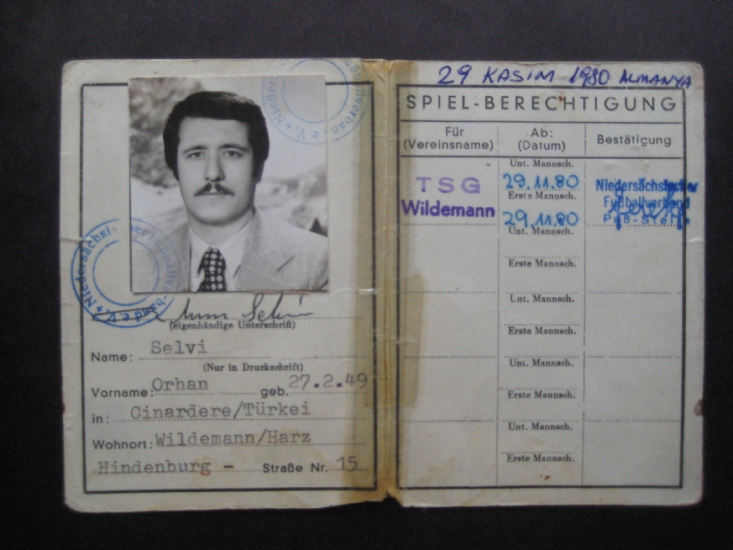 Niedersächsischer Fußballverband e.V.
Selvi
(eigenhändige Unterschrift)
Name: Selvi
(Nur in Druckschrift)
Vorname: Orhan geb. 27.2.49
in: Cinardere/Türkei
Wohnort: Wildemann/Harz
Hindenburg - Straße Nr. 15
29 KASIM 1980 ALMANYA
SPIEL-BERECHTIGUNG
Für (Vereinsname) Ab: (Datum) Bestätigung
Unt. Mannsch.
TSG Wildemann 29.11.80 Niedersächsischer
Erste Mannsch. Fußballverband
29.11.80 Paß-Stelle
Unt. Mannsch.
Erste Mannsch.
Unt. Mannsch.
Erste Mannsch.
Unt. Mannsch.
Erste Mannsch.
Unt. Mannsch.
Erste Mannsch.